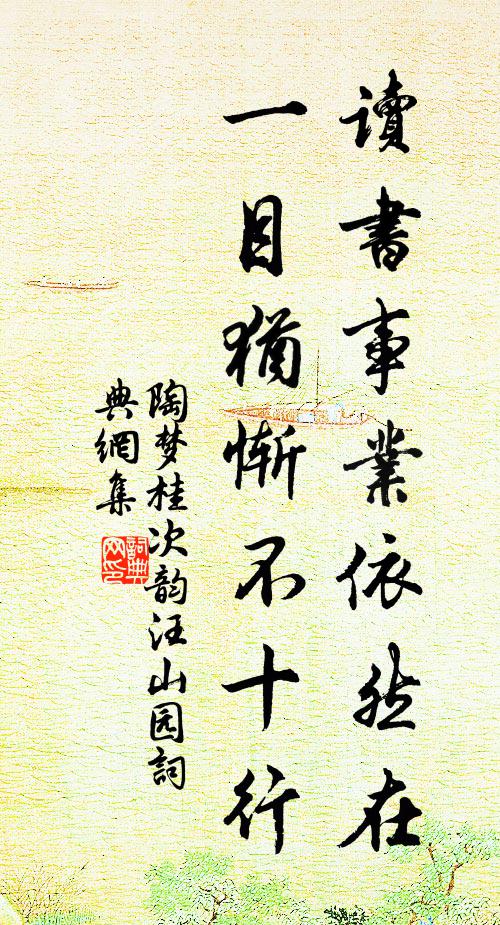 讀書事業依然在
一目猶慚不十行
陶梦桂次韵汪山园詞
典網集
詞典
网印